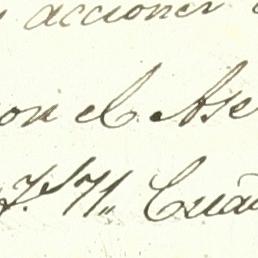 acciones
on el Ase
71,, Cua